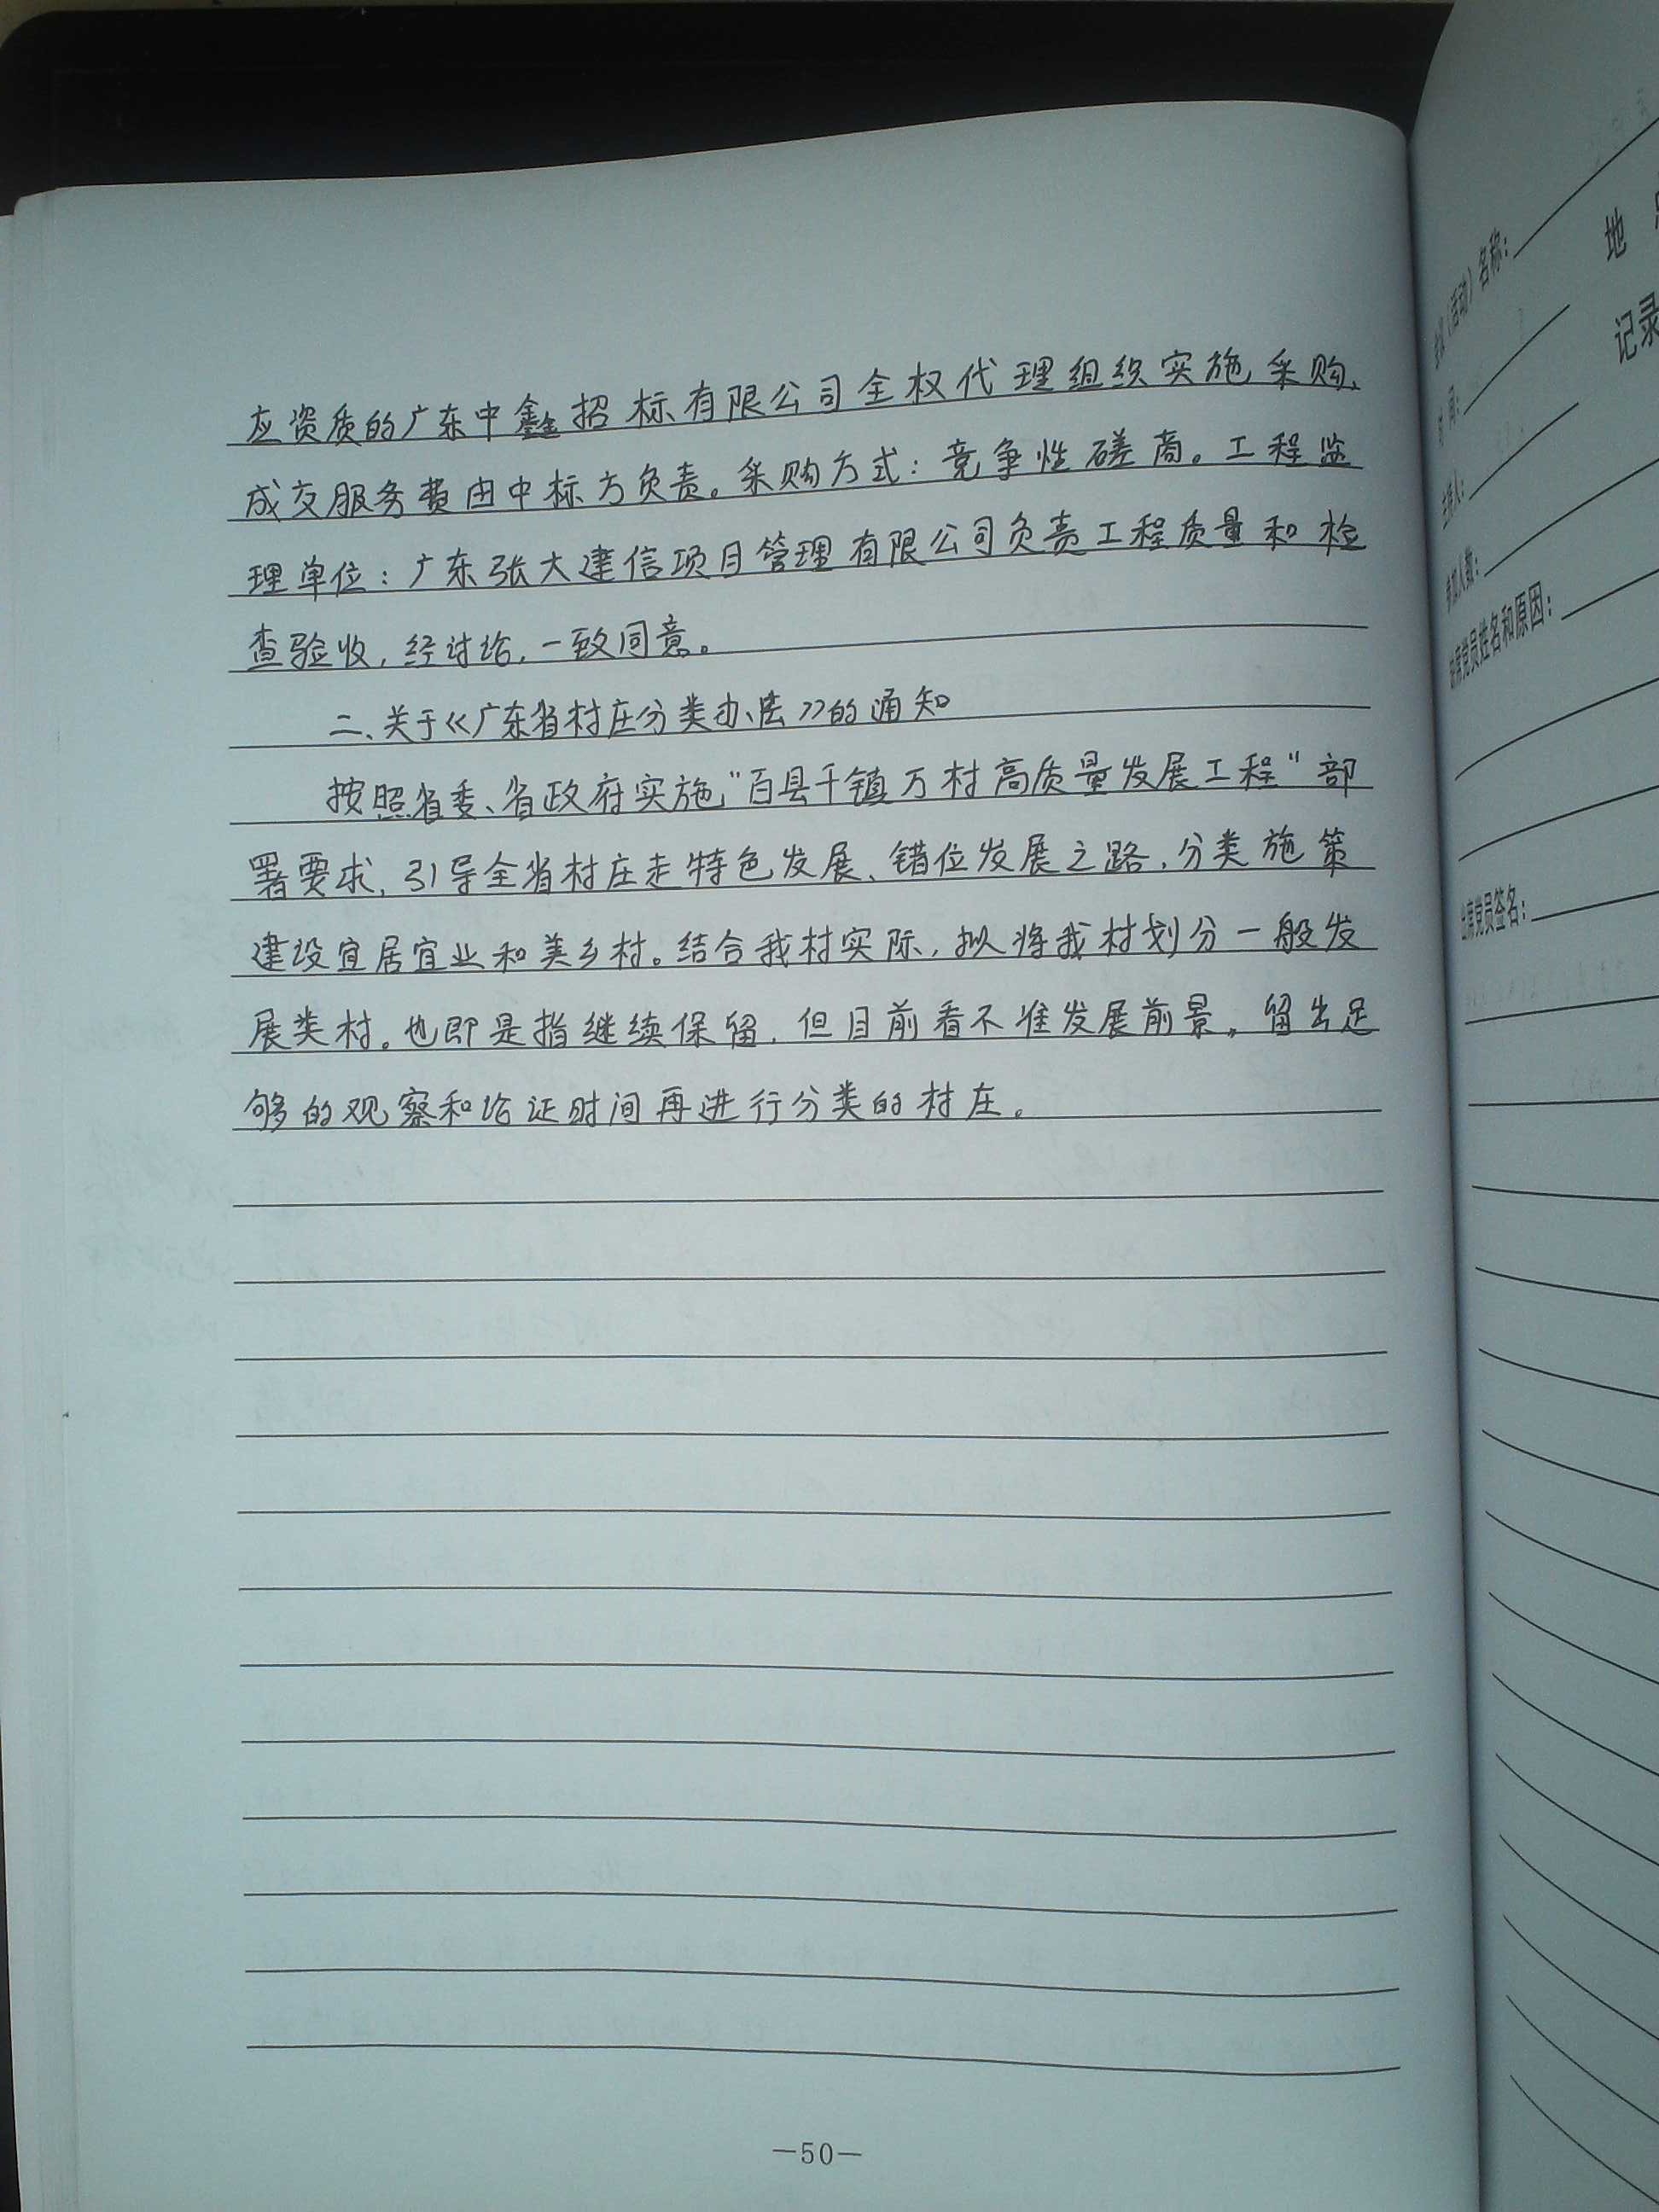 应资质的广东中鑫招标有限公司全权代理组织实施采购、
成交服务费由中标方负责。采购方式：竞争性磋商。工程监
理单位：广东张大建信项目管理有限公司负责工程质量和检
查验收，经讨论，一致同意。
二、关于《广东省村庄分类办法》的通知
按照省委、省政府实施“百县千镇万村高质量发展工程”部
署要求，引导全省村庄走特色发展、错位发展之路，分类施策
建设宜居宜业和美乡村。结合我村实际，拟将我村划分一般发
展类村。也即是指继续保留，但目前看不准发展前景，留出足
够的观察和论证时间再进行分类的村庄。
—50—
（活动）名称：
地
记录
时 间：
主持人：
参加人数：
缺席党员姓名和原因：
出席党员签名：